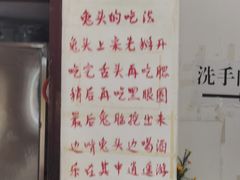 兔头的吃法
兔头上桌先掰开
吃完舌头再吃腮
稍后再吃黑眼圈
最后兔脑挖出来
边啃兔头边喝酒
乐在其中逍遥游
洗手间